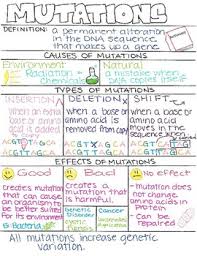 MUTATIONS
DEFINITION: a permanent alteration
in the DNA sequence
that makes up a gene
CAUSES OF MUTATIONS
Environment
Radiation + Chemicals
Natural
a mistake when
DNA copies itself
TYPES OF MUTATIONS
INSERTION
When an extra
base or amino
acid is added
DELETION
when a base or
amino acid is
removed from
SHIFT
when a base or
amino acid
moves in the
sequence
EFFECTS OF MUTATIONS
Good
creates mutation
that can cause
an organism to
be better suited
for its environment
Bacteria
Bad
Creates a
mutation that
is harmful.
Genetic
disorder
Cancer
No effect
mutation does
not change
amino acids or
Proteins
Can be
repaired
All mutations increase genetic
variation.